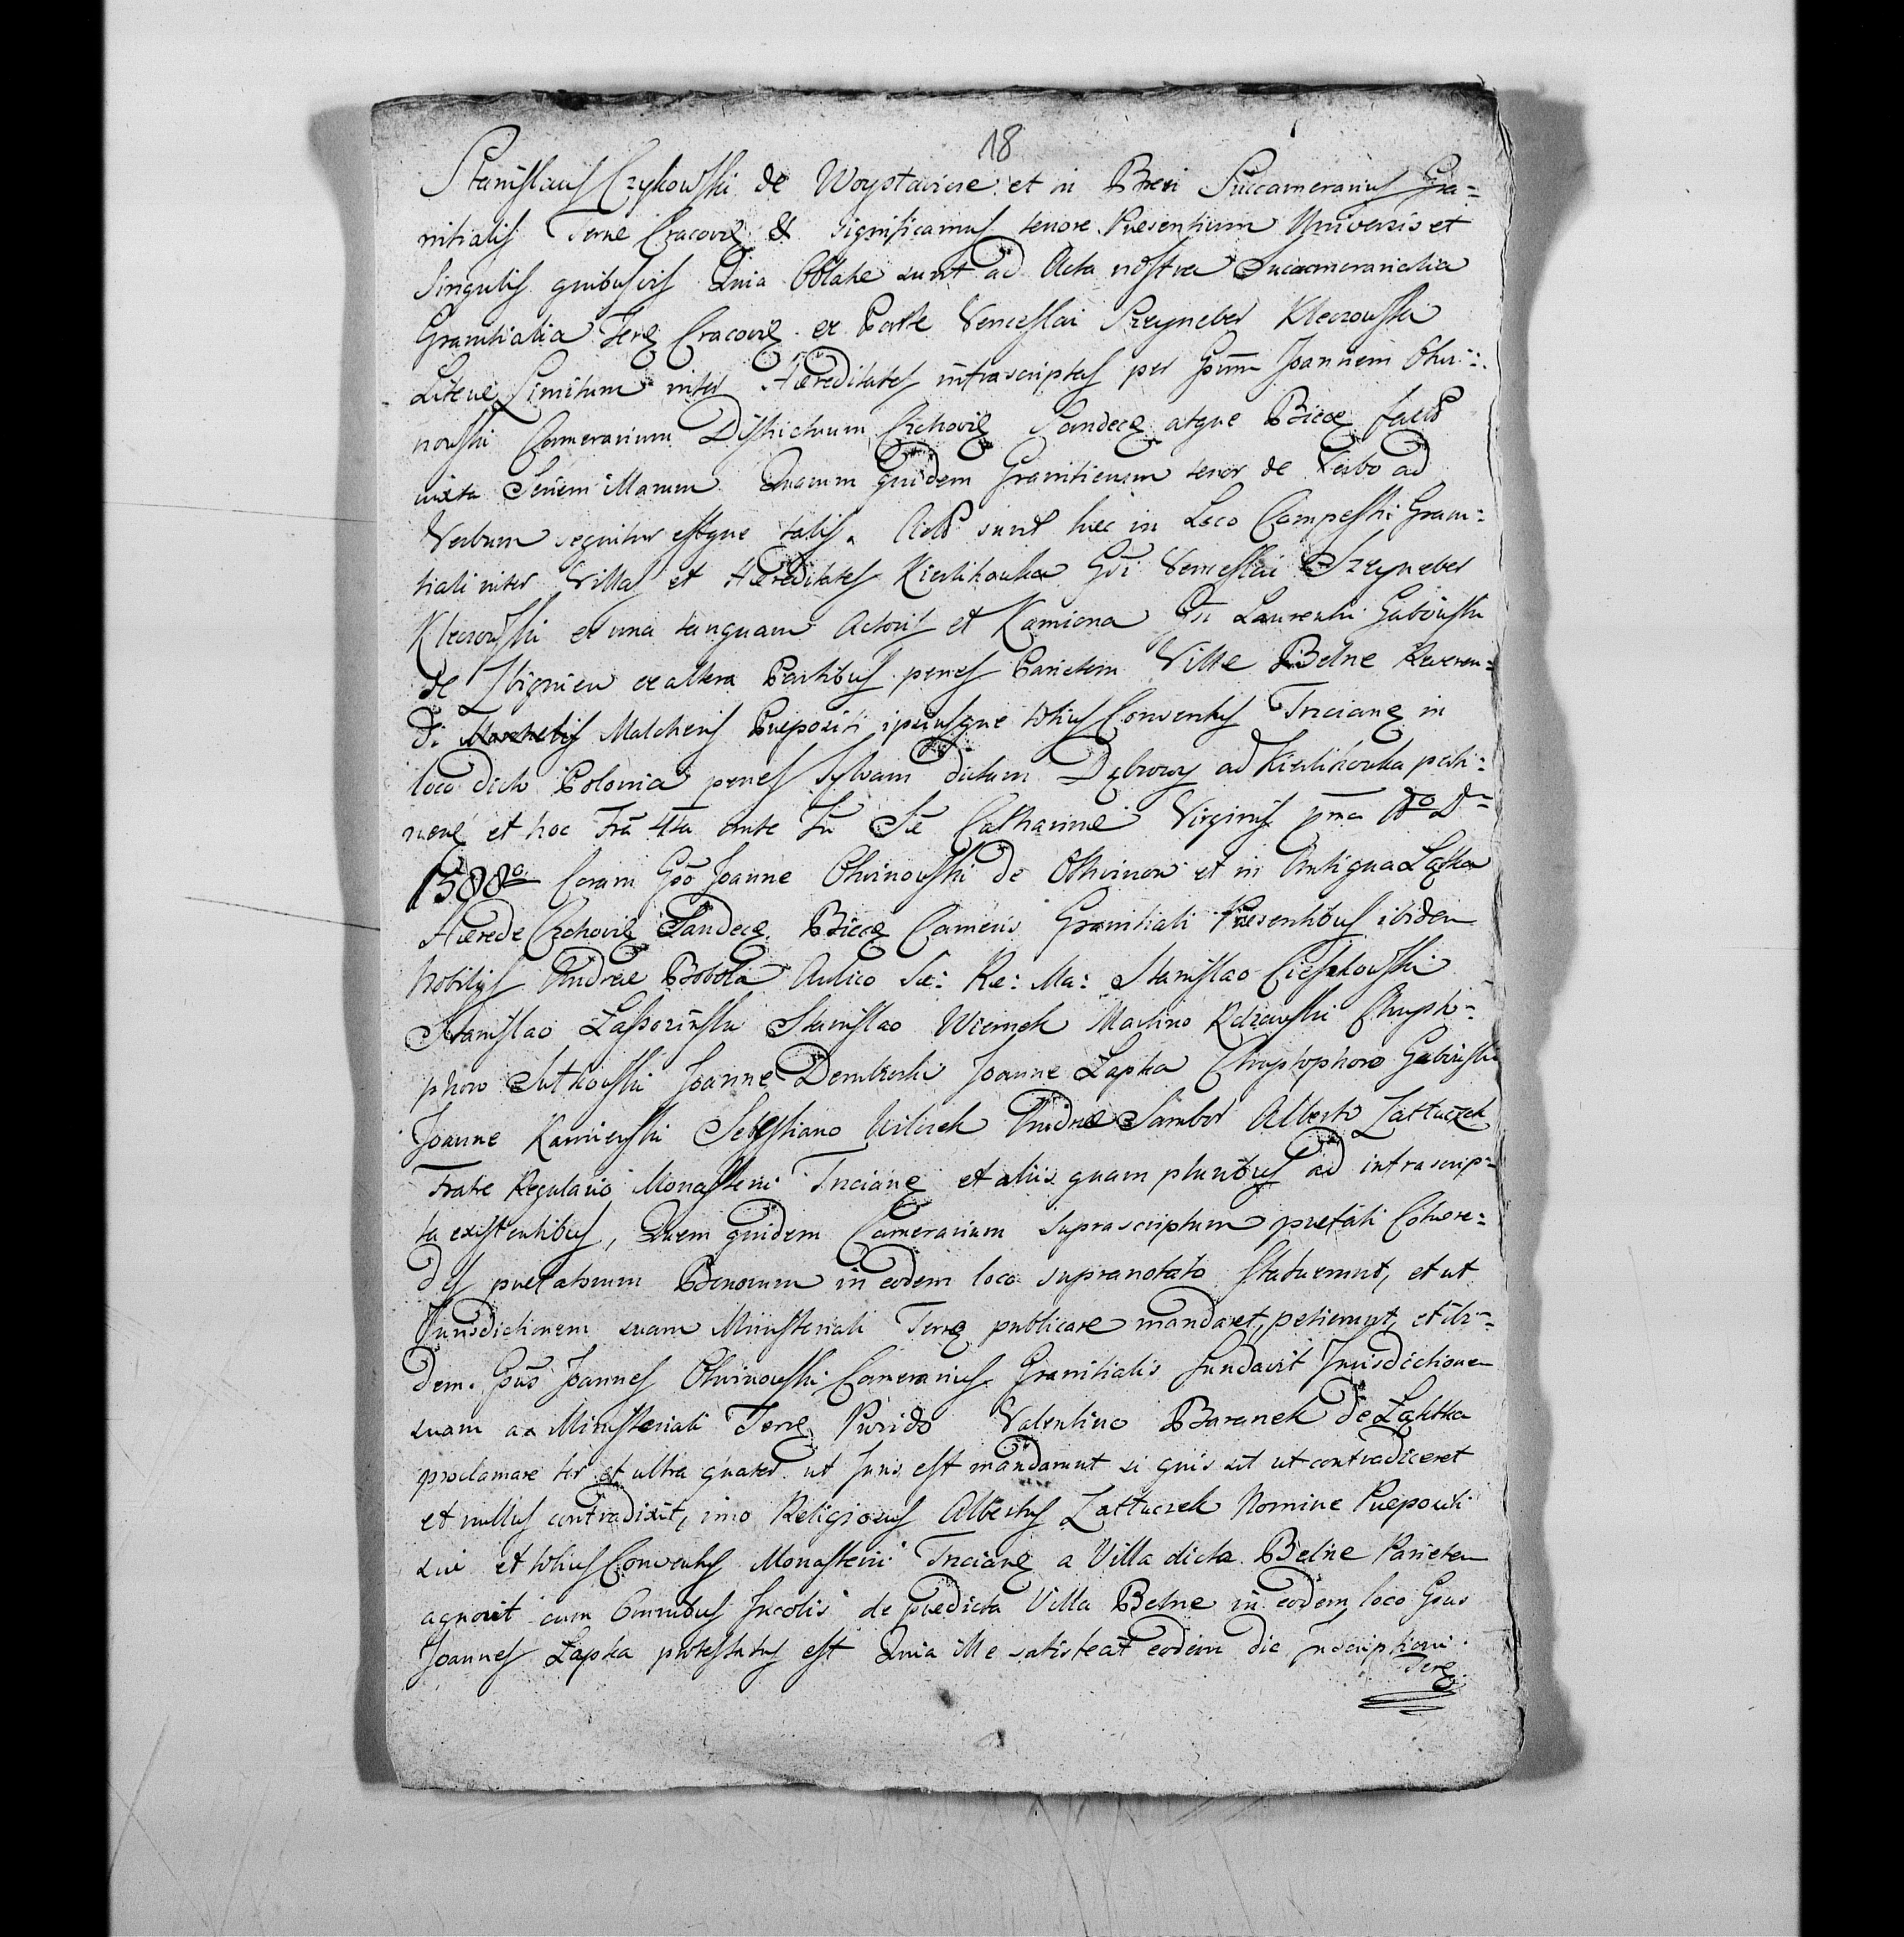 18
Stanislaus Czykowski de Woystawice et in Brzezi Succamerarius Gra=
nitialis Terrae Cracovię & significamus tenore Praesentium Universis et
Singulis quibusvis Quia Oblatae sunt ad Acta nostra Succameraralia
Granitialia Terrę Cracovię ex Parte Venceslai Szreyneber Kleczowski
Literae Limitum inter Haereditates infrascriptas per Gsum Joannem Othwi=
nowski Camerarium Districtuum Czchovię Sandecę atque Biecę factae
iuxta Seriem illarum Quarum quidem Granitierum tenor de Verbo ad
Verbum sequitur estque talis. Acta sunt haec in Loco Campestri Grani=
tiali inter Villas et Haereditates Kierlikowka Gsi Venceslai Szreyneber
Kleczowski ex una tanquam Actoris et Kamiona Gsi Laurentii Gaboński
de Zbigniew ex altera Partibus penes Parietem Villae Bełne Reveren=
di Malcheris Praepositi ipsiusque totius Conventus Trzcianę in
loco dicto Polonia penes Sylvam dictam Dębrowy ad Kierlikowka perti=
nenę et hoc Fria 4ta ante Fm Stae Catharinae Virginis pma Ao Dni
1588o Coram Gso Joanne Othvinowski de Othvinow et in Antiqua Łąthka
Haerede Czchovię Sandecę Biecę Camerio Granitiali Praesentibus ibidem
Nobilibus Andrea Bobola Aulico Sae: Re: Ma: Stanislao Cieszkowski
Stanislao Łapszinski Stanislao Wiernek Martino Rdzawski Chrysto=
phoro Sutkowski Joanne Dembicki Joanne Łapka Chrystophoro Gabinski
Joanne Kamienski Sebestiano Wilczek Andrea Sambor Alberto Zattuczek
Fratre Regulario Monasterii Trzcianę et aliis quam pluribus ad infrascrip=
ta existentibus, Quem quidem Camerarium suprascriptum praefati Cohaere=
des praefatorum Bonorum in eodem loco supranotato statuerunt, et ut
Jurisdictionem suam Ministeriali Terrę publicare mandaret, petierunt, et ibi=
dem. Gsus Joannes Othvinowski Camerarius Granitialis fundavit Jurisdictionem
suam ac Ministeriali Terrę Provido Valentino Baranek de Łąkta
proclamare ter et ultra quater ut Juris est mandarunt si quis sit ut contradiceret
et nullus contradixit, imo Religiosus Albertus Zattuczek Nomine Praepositi
sui et totius Conventus Monasterii Trzcianę a Villa dicta Bełne Parietem
agnovit cum Omnibus Incolis de praedicta Villa Bełne in eodem loco Gsus
Joannes Łapka protestatus est Quia ille satisfecit eodem die
Terę